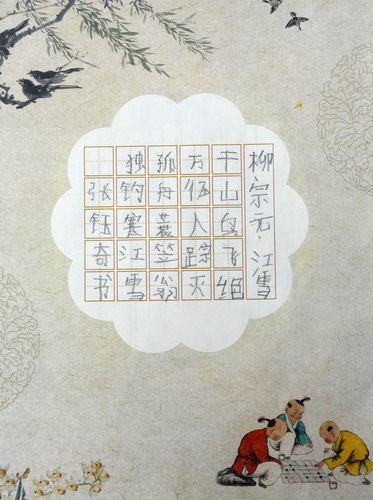 柳宗元·江雪
千山鸟飞绝
万径人踪灭
孤舟蓑笠翁
独钓寒江雪
张钰奇书